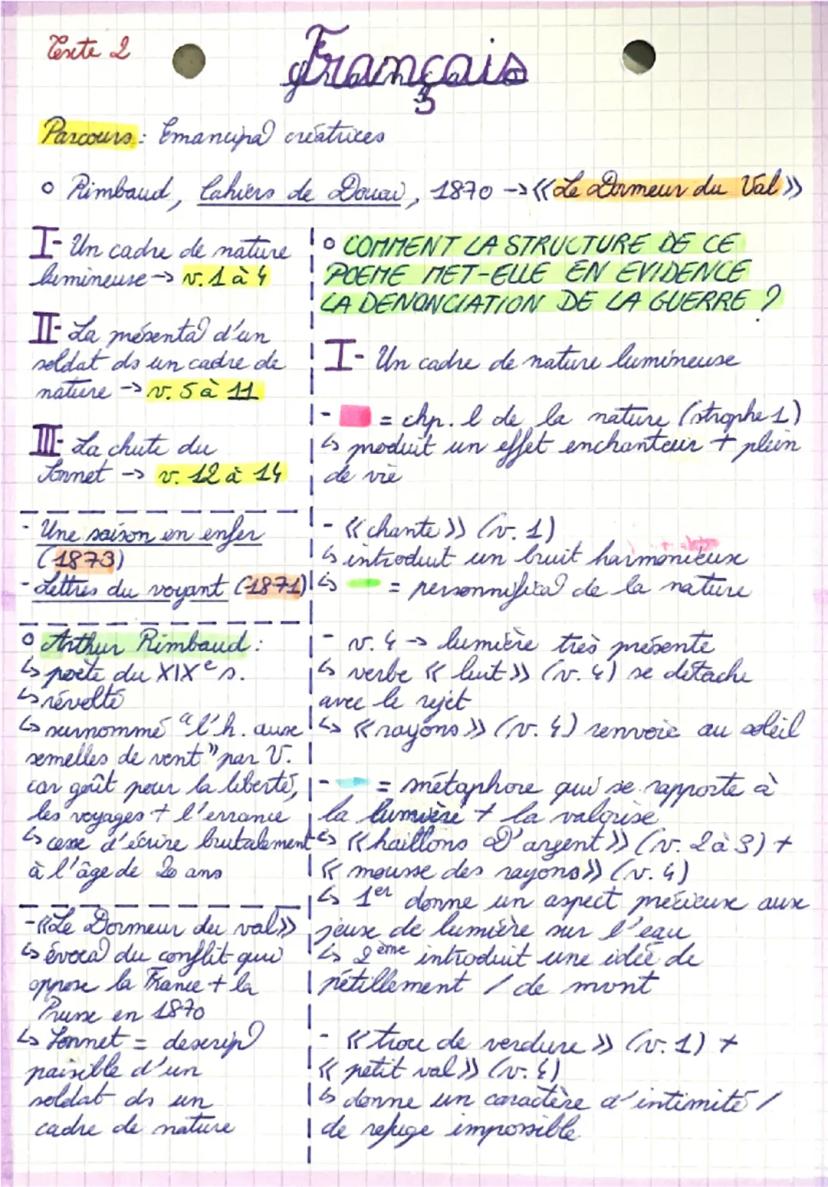 Texte 2
Français
Parcours : Emancipa° créatrices
o Rimbaud, Cahiers de Douai, 1870 -> «Le Dormeur du Val»
I- Un cadre de nature
lumineuse -> v. 1 à 4
II- La présenta° d'un
soldat ds un cadre de
nature -> v. 5 à 11
III- La chute du
Sonnet -> v. 12 à 14
- Une saison en enfer
(1873)
- Lettres du voyant (1871)
o Arthur Rimbaud :
↳ poète du XIXe s.
↳ révolté
↳ surnommé "l'h. aux
semelles de vent" par V.
car goût pour la liberté,
les voyages + l'errance
↳ cesse d'écrire brutalement
à l'âge de 20 ans
- «Le Dormeur du val»
↳ évoca° du conflit qui
oppose la France + la
Prusse en 1870
↳ Sonnet = descrip°
paisible d'un
soldat ds un
cadre de nature
o COMMENT LA STRUCTURE DE CE
POEME MET-ELLE EN EVIDENCE
LA DENONCIATION DE LA GUERRE ?
I- Un cadre de nature lumineuse
- = chp. l de la nature (strophe 1)
↳ produit un effet enchanteur + plein
de vie
- «chante» (v. 1)
↳ introduit un bruit harmonieux
↳ = personnifica° de la nature
- v. 4 -> lumière très présente
↳ verbe « luit » (v. 4) se détache
avec le rejet
↳ «rayons» (v. 4) renvoie au soleil
- = métaphore qui se rapporte à
la lumière + la valorise
↳ «haillons D'argent» (v. 2 à 3) +
« mousse des rayons» (v. 4)
↳ 1er donne un aspect précieux aux
jeux de lumière sur l'eau
↳ 2ème introduit une idée de
pétillement / de mont
- «trou de verdure » (v. 1) +
« petit val» (v. 4)
↳ donne un caractère d'intimité /
de refuge impossible